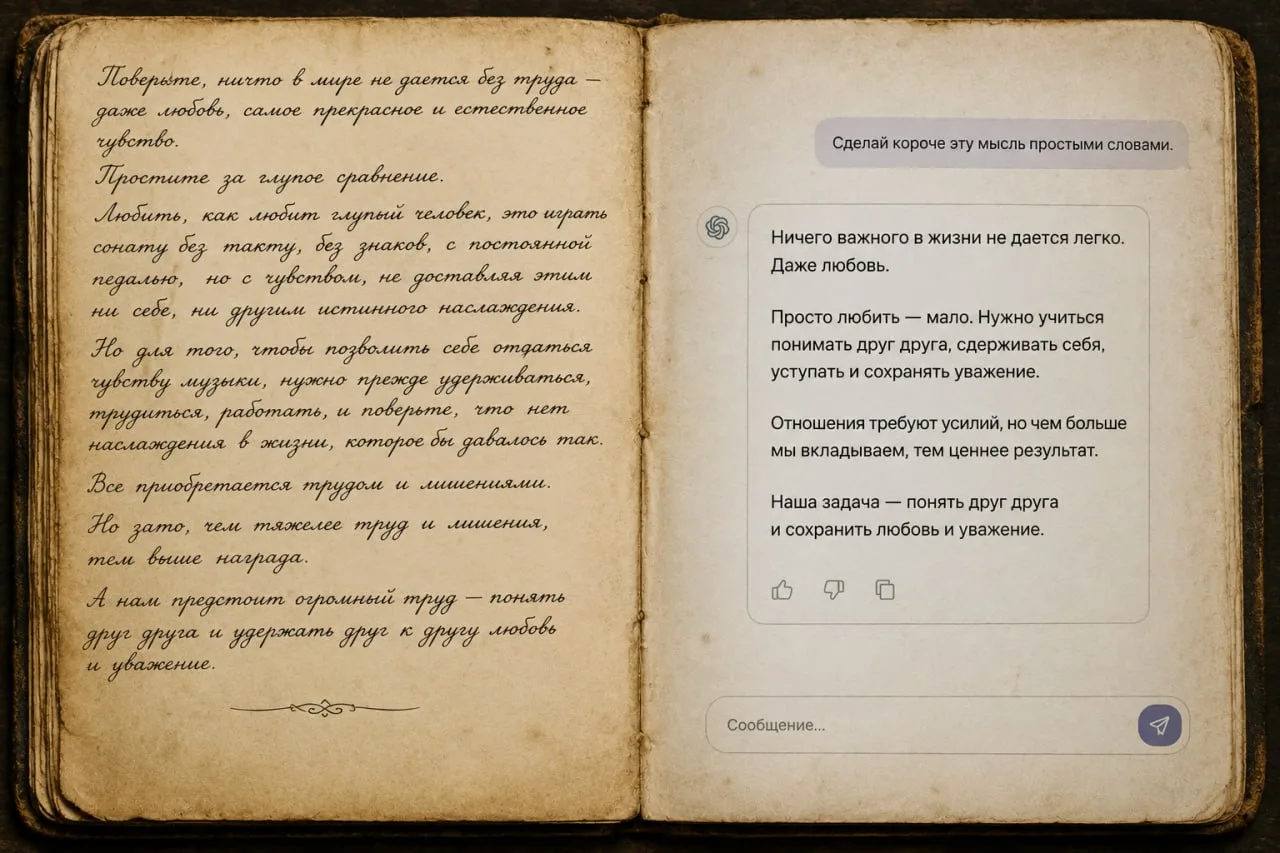 Поверьте, ничто в мире не дается без труда —
даже любовь, самое прекрасное и естественное
чувство.
Простите за глупое сравнение.
Любить, как любит глупый человек, это играть
сонату без такту, без знаков, с постоянной
педалью, но с чувством, не доставляя этим
ни себе, ни другим истинного наслаждения.
Но для того, чтобы позволить себе отдаться
чувству музыки, нужно прежде удерживаться,
трудиться, работать, и поверьте, что нет
наслаждения в жизни, которое бы давалось так.
Все приобретается трудом и лишениями.
Но зато, чем тяжелее труд и лишения,
тем выше награда.
А нам предстоит огромный труд — понять
друг друга и удержать друг к другу любовь
и уважение.
Сделай короче эту мысль простыми словами.
Ничего важного в жизни не дается легко.
Даже любовь.
Просто любить — мало. Нужно учиться
понимать друг друга, сдерживать себя,
уступать и сохранять уважение.
Отношения требуют усилий, но чем больше
мы вкладываем, тем ценнее результат.
Наша задача — понять друг друга
и сохранить любовь и уважение.
Сообщение...